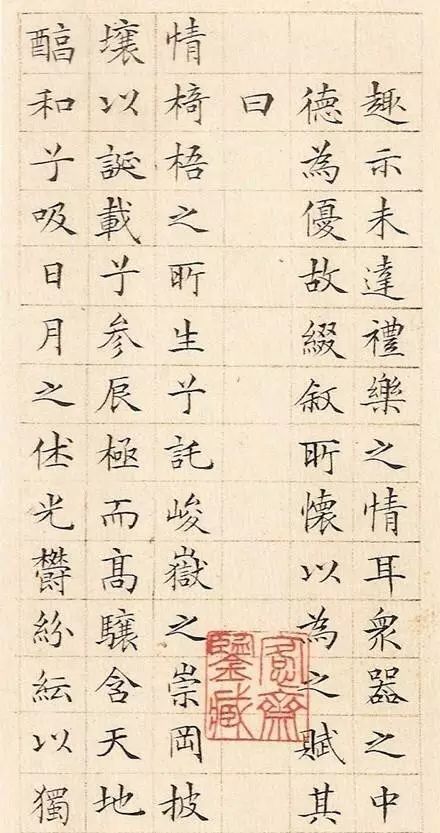 趣示未達禮樂之情耳衆器之中
德為優故綴叙所懷以為之賦其
曰
情椅梧之所生兮託峻嶽之崇岡披
壤以誕載兮参辰極而高驤含天地
醕和兮吸日月之休光鬱紛紜以獨
愙齋
鑒藏